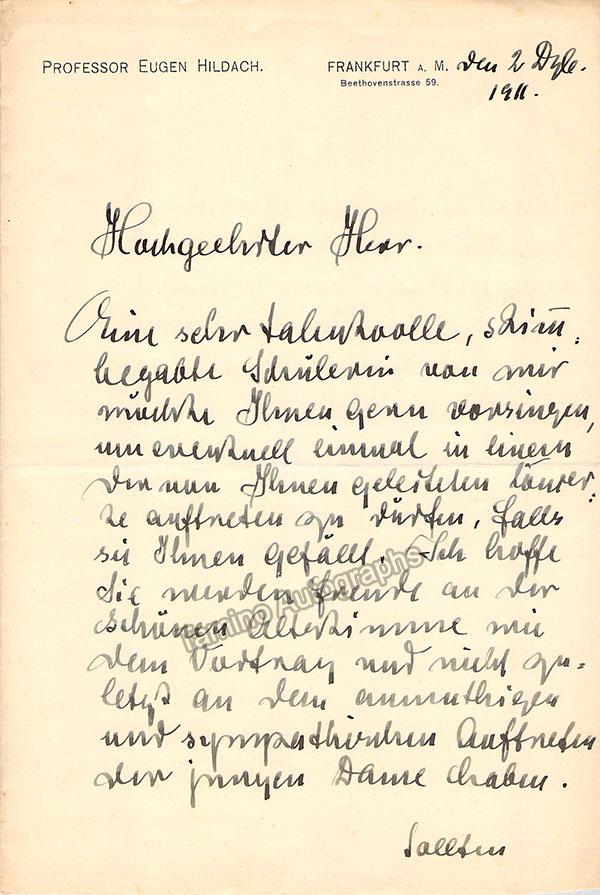 PROFESSOR EUGEN HILDACH.
FRANKFURT A. M. den 2 Dzb.
Beethovenstrasse 59.
1911.
Hochgeehrter Herr.
Eine sehr talentvolle, stimm-
begabte Schülerin von mir
möchte Ihnen gern vorsingen,
um eventuell einmal in einem
der von Ihnen geleiteten Conzer-
te auftreten zu dürfen, falls
sie Ihnen gefällt. Ich hoffe
Sie werden Freude an der
schönen Altstimme wie
dem Vortrag und nicht zu-
letzt an dem anmuthigen
und sympathischen Auftreten
der jungen Dame haben.
Sollten
Tamino Autographs